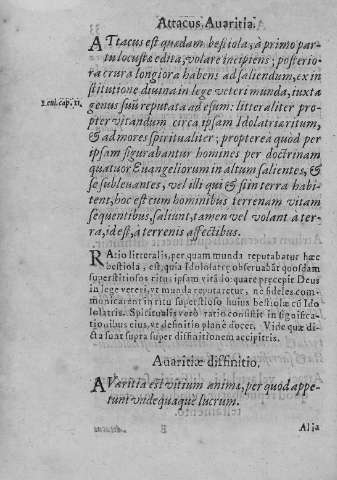 Attacus. Avaritia.
ATtacus est quædam bestiola, à primo par-
tu locustæ edita, volare incipiens; posterio-
ra crura longiora habens ad saliendum, ex in
stitutione divina in lege veteri munda, iuxta
Leui. cap. 11.
genus suũ reputata ad esum: litteraliter pro-
pter vitandum circa ipsam Idolatriæ ritum,
& ad mores spiritualiter; propterea quod per
ipsam figurabantur homines per doctrinam
quatuor Euangeliorum in altum salientes, &
se subleuantes, vel illi qui & si in terra habi-
tent, hoc est cum hominibus terrenam vitam
sequentibus, saliunt, tamen vel volant à ter-
ra, id est, à terrenis affectibus.
RAtio litteralis, per quam munda reputabatur hæc
bestiola, est, quia Idololatrę obseruabãt quosdam
superstitiosos ritus ipsam vitādo: quare præcepit Deus
in lege veteri, vt munda reputaretur, ne fideles com-
municarent in ritu superstioso huius bestiolæ cũ Ido
lolatris. Spiritualis verò ratio consistit in significa-
tionibus eius, vt definitio planè docet. Vide quæ di-
cta sunt supra super diffinitionem accipitris.
Auaritiæ diffinitio.
AVaritia est vitium animæ, per quod appe-
tuni vndequaque lucrum.
E
Alia